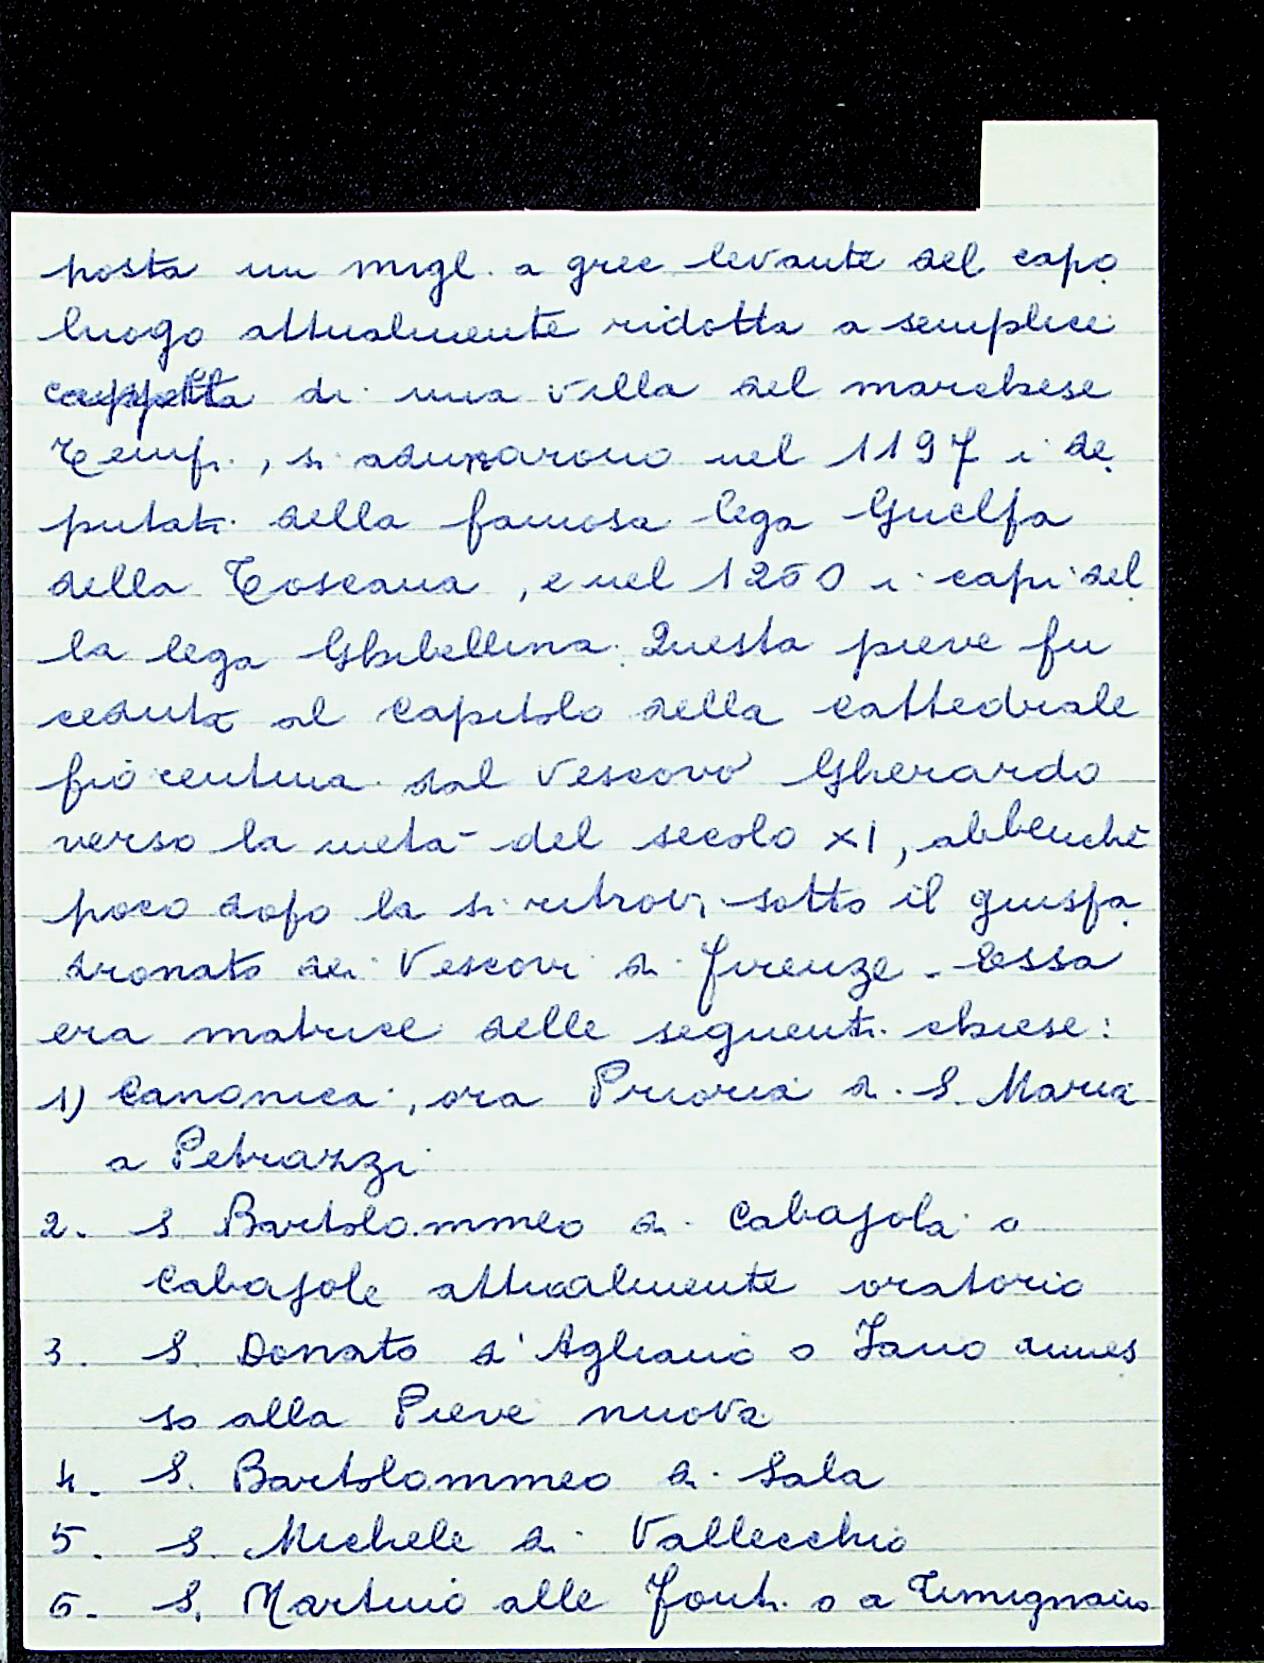 posta un migl. a grec levante del capo
luogo attualmente ridotta a semplice
cappella di una villa del marchese
Tempi, si adunarono nel 1197 i de
putati della famosa lega Guelfa
della Toscana, e nel 1250 i capi del
la lega Ghibellina. Questa pieve fu
ceduta al capitolo della cattedrale
fiorentina dal Vescovo Gherardo
verso la metà del secolo XI, abbenchè
poco dopo la si ritrovi sotto il giuspa
dronato dei Vescovi di Firenze. Essa
era matrice delle seguenti chiese:
1) Canonica, ora Prioria di S. Maria
a Petrazzi
2. S Bartolommeo di Cabajola o
Cabajole attualmente oratorio
3. S. Donato d'Agliano o Iano annes
so alla Pieve nuova
4. S. Bartolommeo di Sala
5. S. Michele di Vallecchio
6. S. Martino alle Fonti o a Timignano